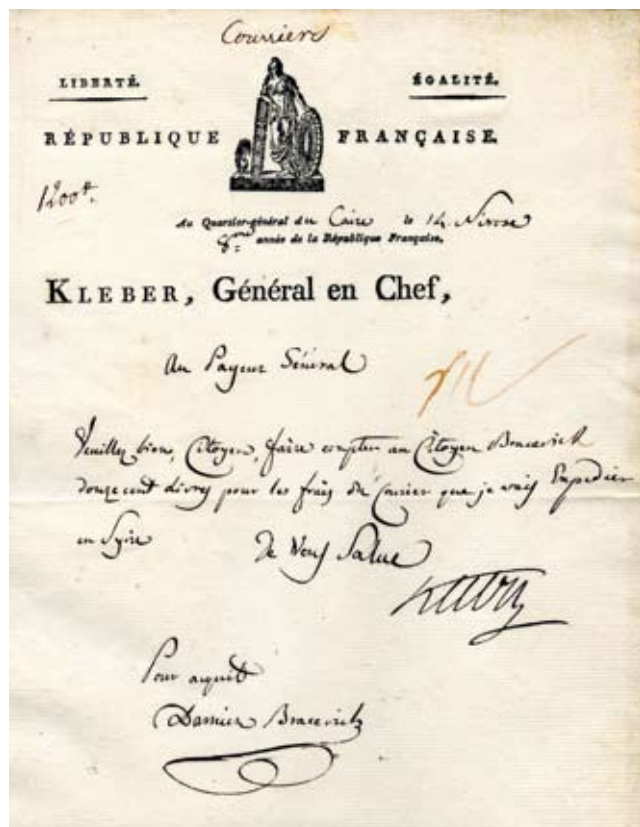 Courriers
LIBERTÉ. ÉGALITÉ.
RÉPUBLIQUE FRANÇAISE.
1200#.
Au Quartier-général du Caire le 14. Nivose
8.eme année de la République Française,
KLEBER, Général en Chef,
Au Payeur Général
Veuillez bien, Citoyen, faire compter au Citoyen Bracevich
douze cent Livres pour les frais du Courier que je vais Expedier
en Syrie
Je Vous Salue
Kleber
Pour acquit
Damien Bracevich